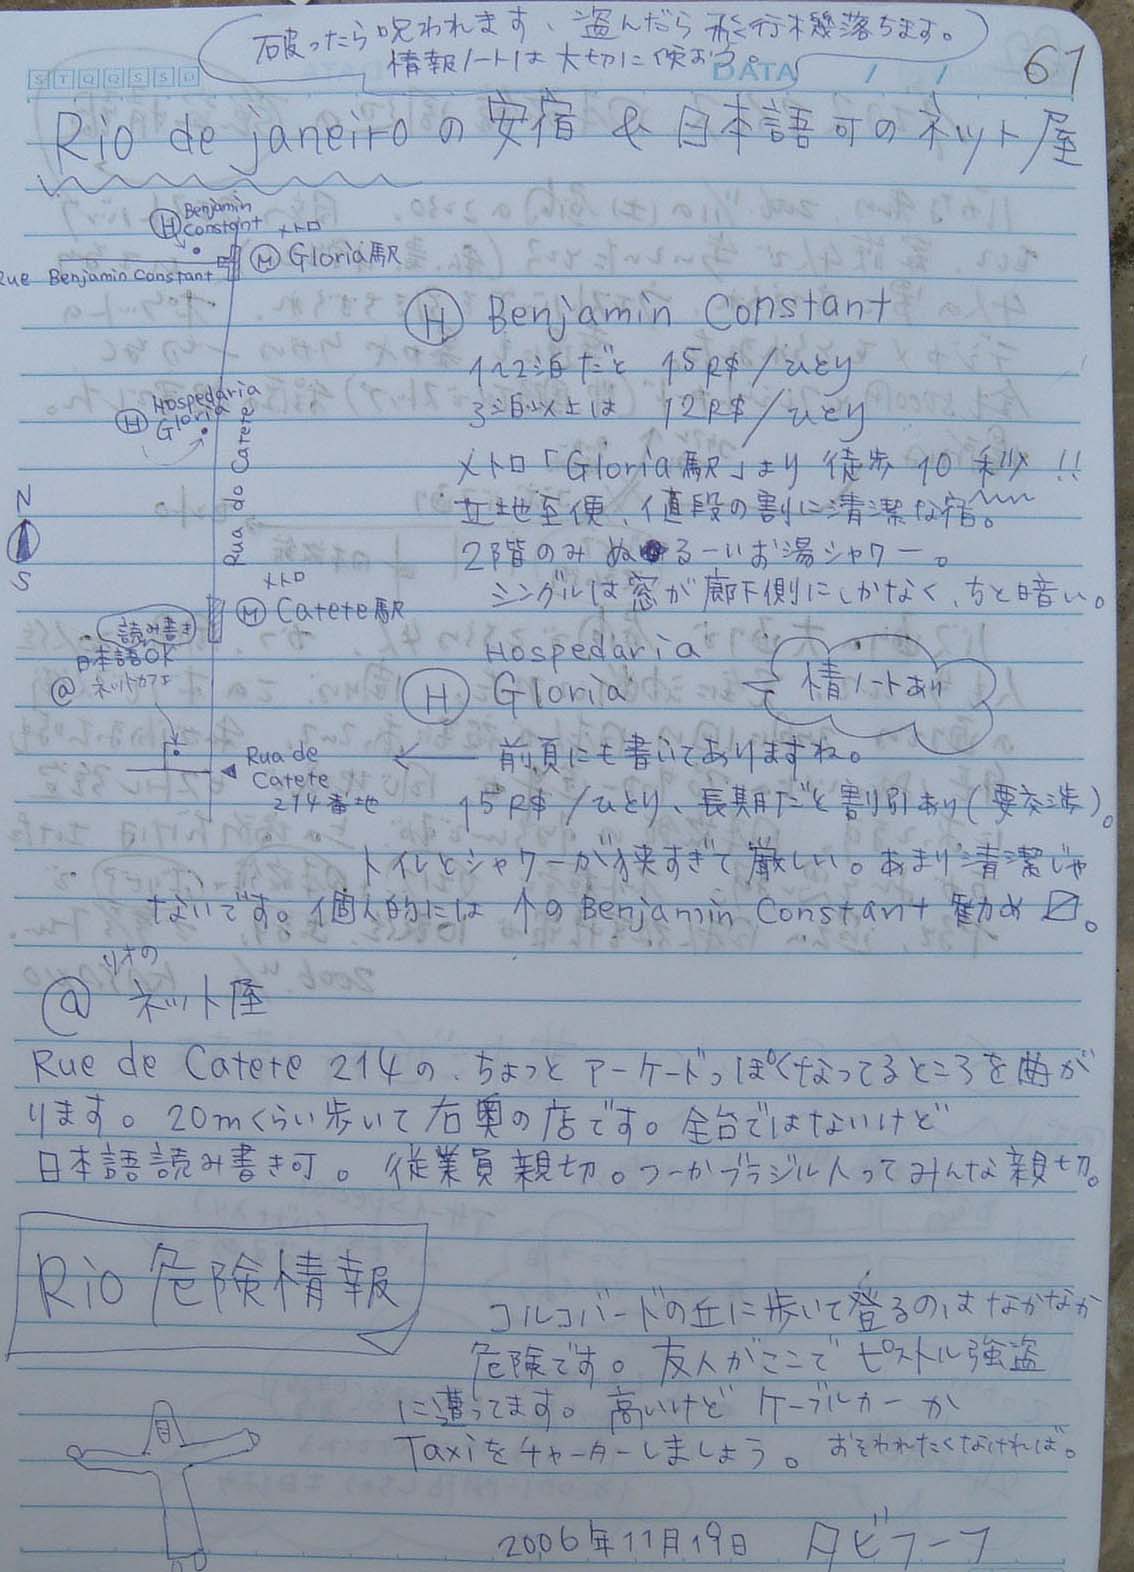 破ったら呪われます、盗んだら飛行機落ちます。
情報ノートは大切に使おう。
STQQSSD
DATA / /
61
Rio de janeiroの安宿 & 日本語可のネット屋
Ⓗ Benjamin Constant
メトロ
Ⓜ Gloria駅
Rue Benjamin Constant
Ⓗ Benjamin Constant
1〜2泊だと 15R$/ひとり
3泊以上は 12R$/ひとり
Ⓗ Hospedaria Gloria
Rua do Catete
メトロ「Gloria駅」より 徒歩 10 秒 !!
立地至便、値段の割に清潔な宿。
N
S
2階のみ ぬるーいお湯シャワー。
シングルは窓が廊下側にしかなく、ちと暗い。
メトロ
Ⓜ Catete駅
読み書き
日本語OK
@ ネットカフェ
Hospedaria
Ⓗ Gloria
情ノートあり
← 前頁にも書いてありますね。
Rua de
Catete
214番地
15R$/ひとり、長期だと割引あり(要交渉)。
トイレとシャワーが狭すぎて厳しい。あまり清潔じゃ
ないです。個人的には ↑のBenjamin Constant 勧め〼。
リオの
@ ネット屋
Rue de Catete 214の、ちょっとアーケードっぽくなってるところを曲が
ります。20mくらい歩いて右奥の店です。全台ではないけど
日本語読み書き可。従業員親切。つーかブラジル人ってみんな親切。
Rio 危険情報
コルコバードの丘に歩いて登るのはなかなか
危険です。友人がここでピストル強盗
に遭ってます。高いけど ケーブルカーか
Taxiをチャーターしましょう。おそわれたくなければ。
2006年11月19日 タビーフ